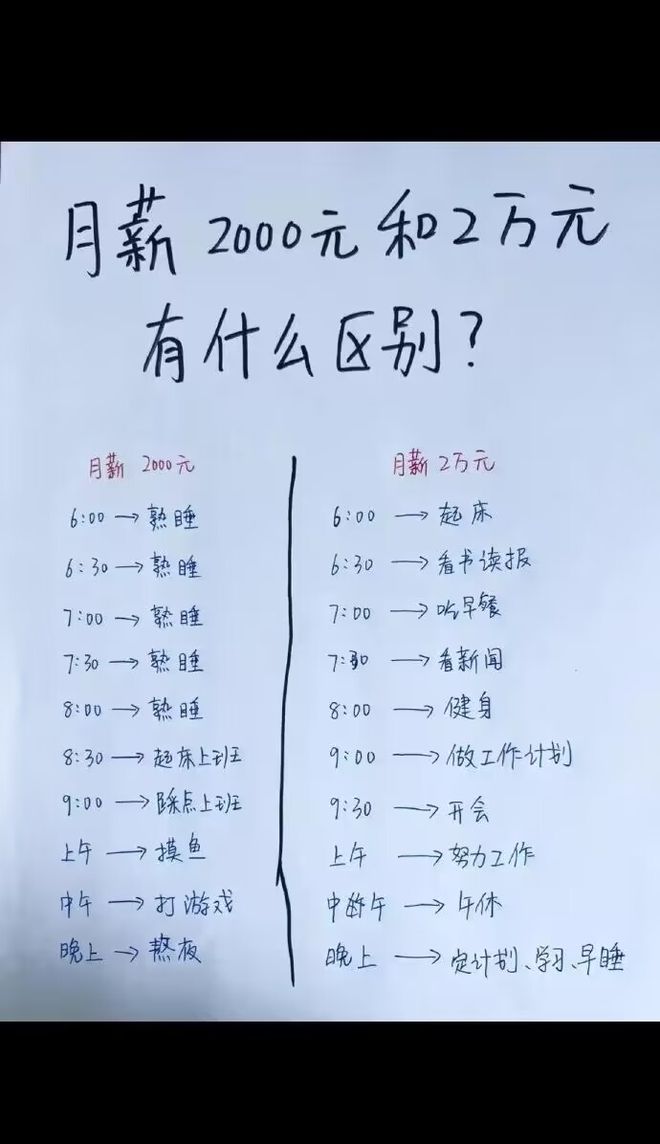 月薪2000元和2万元
有什么区别?
月薪 2000元
6:00 → 熟睡
6:30 → 熟睡
7:00 → 熟睡
7:30 → 熟睡
8:00 → 熟睡
8:30 → 起床上班
9:00 → 踩点上班
上午 → 摸鱼
中午 → 打游戏
晚上 → 熬夜
月薪 2万元
6:00 → 起床
6:30 → 看书读报
7:00 → 吃早餐
7:30 → 看新闻
8:00 → 健身
9:00 → 做工作计划
9:30 → 开会
上午 → 努力工作
中午 → 午休
晚上 → 定计划、学习、早睡